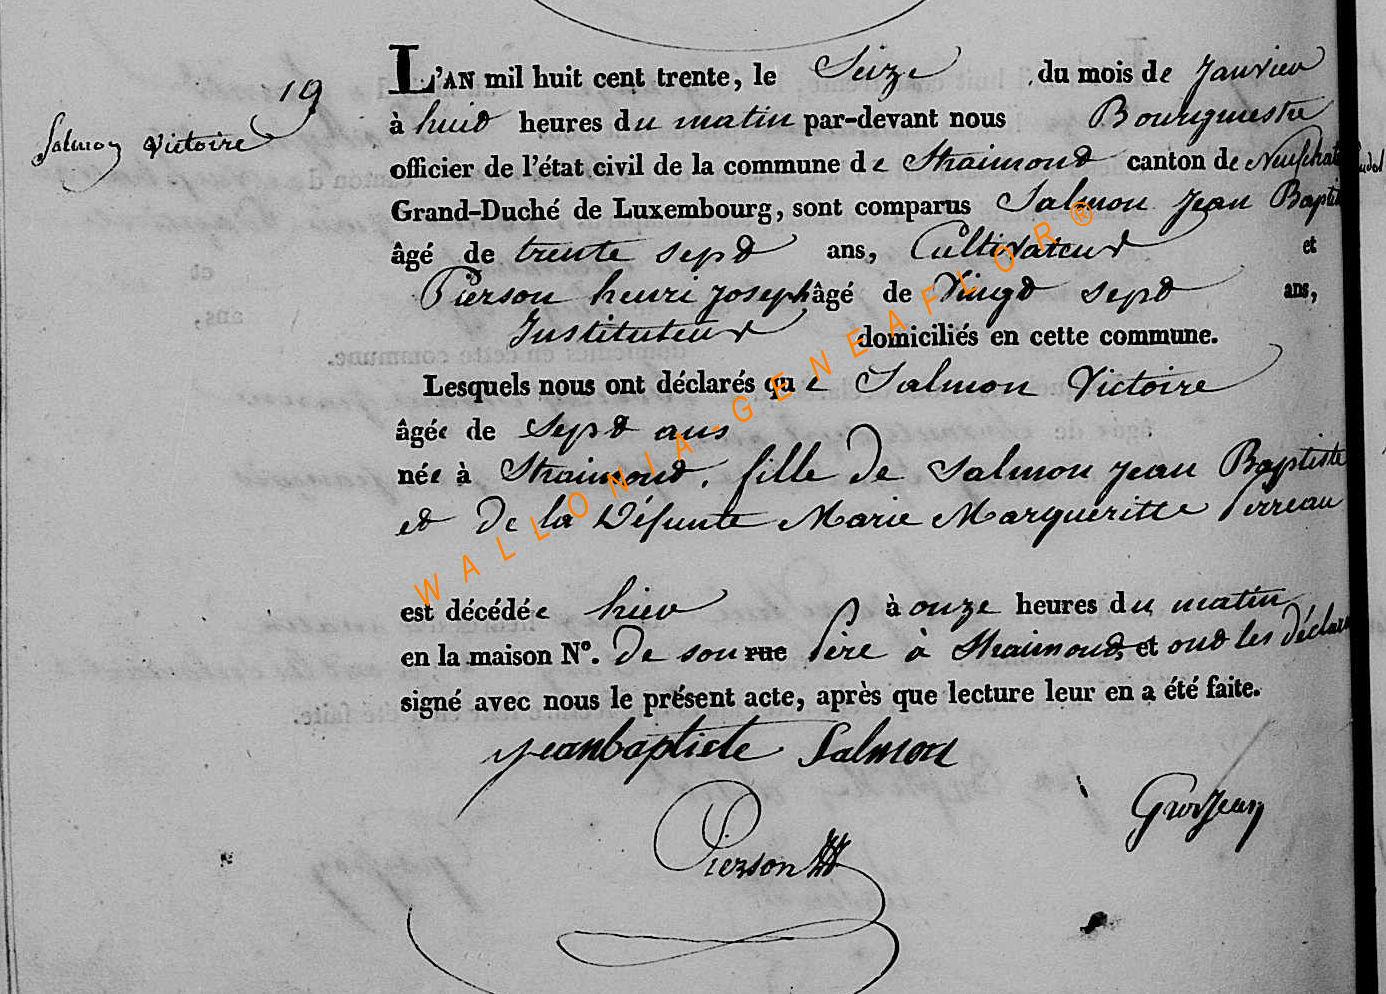 19
Salmon Victoire
L'AN mil huit cent trente, le Seize du mois de Janvier
à huid heures du matin par-devant nous Bourgmestre
officier de l'état civil de la commune de Straimond canton de Neufchat
Grand-Duché de Luxembourg, sont comparus Salmon Jean Baptis
âgé de trente sepd ans, Cultivateur et
Pierson henri joseph âgé de Vingd sepd ans,
Instituteur domiciliés en cette commune.
Lesquels nous ont déclarés que Salmon Victoire
âgée de Sepd ans
née à Straimond. fille de Salmon jean Baptiste
ed De la Défunte Marie Margueritte Pierreau
est décédée hier à onze heures du matin
en la maison N°. De son rue Père à Straimond, et ond les déclar
signé avec nous le présent acte, après que lecture leur en a été faite.
jeanbaptiste Salmon
GrosJean
Pierson HJ
WALLONIA-GENEAFLOR®